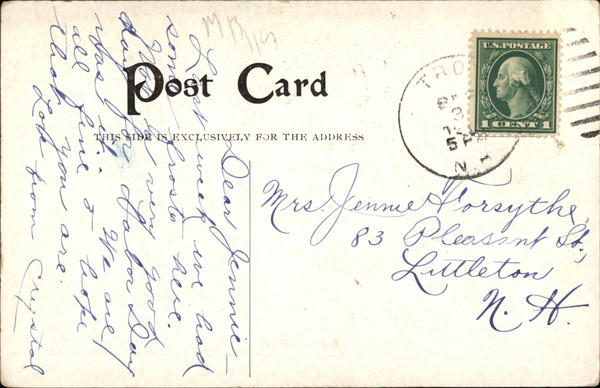 Post Card
THIS SIDE IS EXCLUSIVELY FOR THE ADDRESS
U.S. POSTAGE
1 CENT 1
TRO
SEP
3
5 PM
N.H.
Mrs. Jennie Forsythe,
83 Pleasant St.,
Littleton
N. H.
Dear Jennie—
Last week we had
some frosts here.
Not very good
day for Labor Day
has it. We are
all fine & hope
that you are.
Lots from Crystal